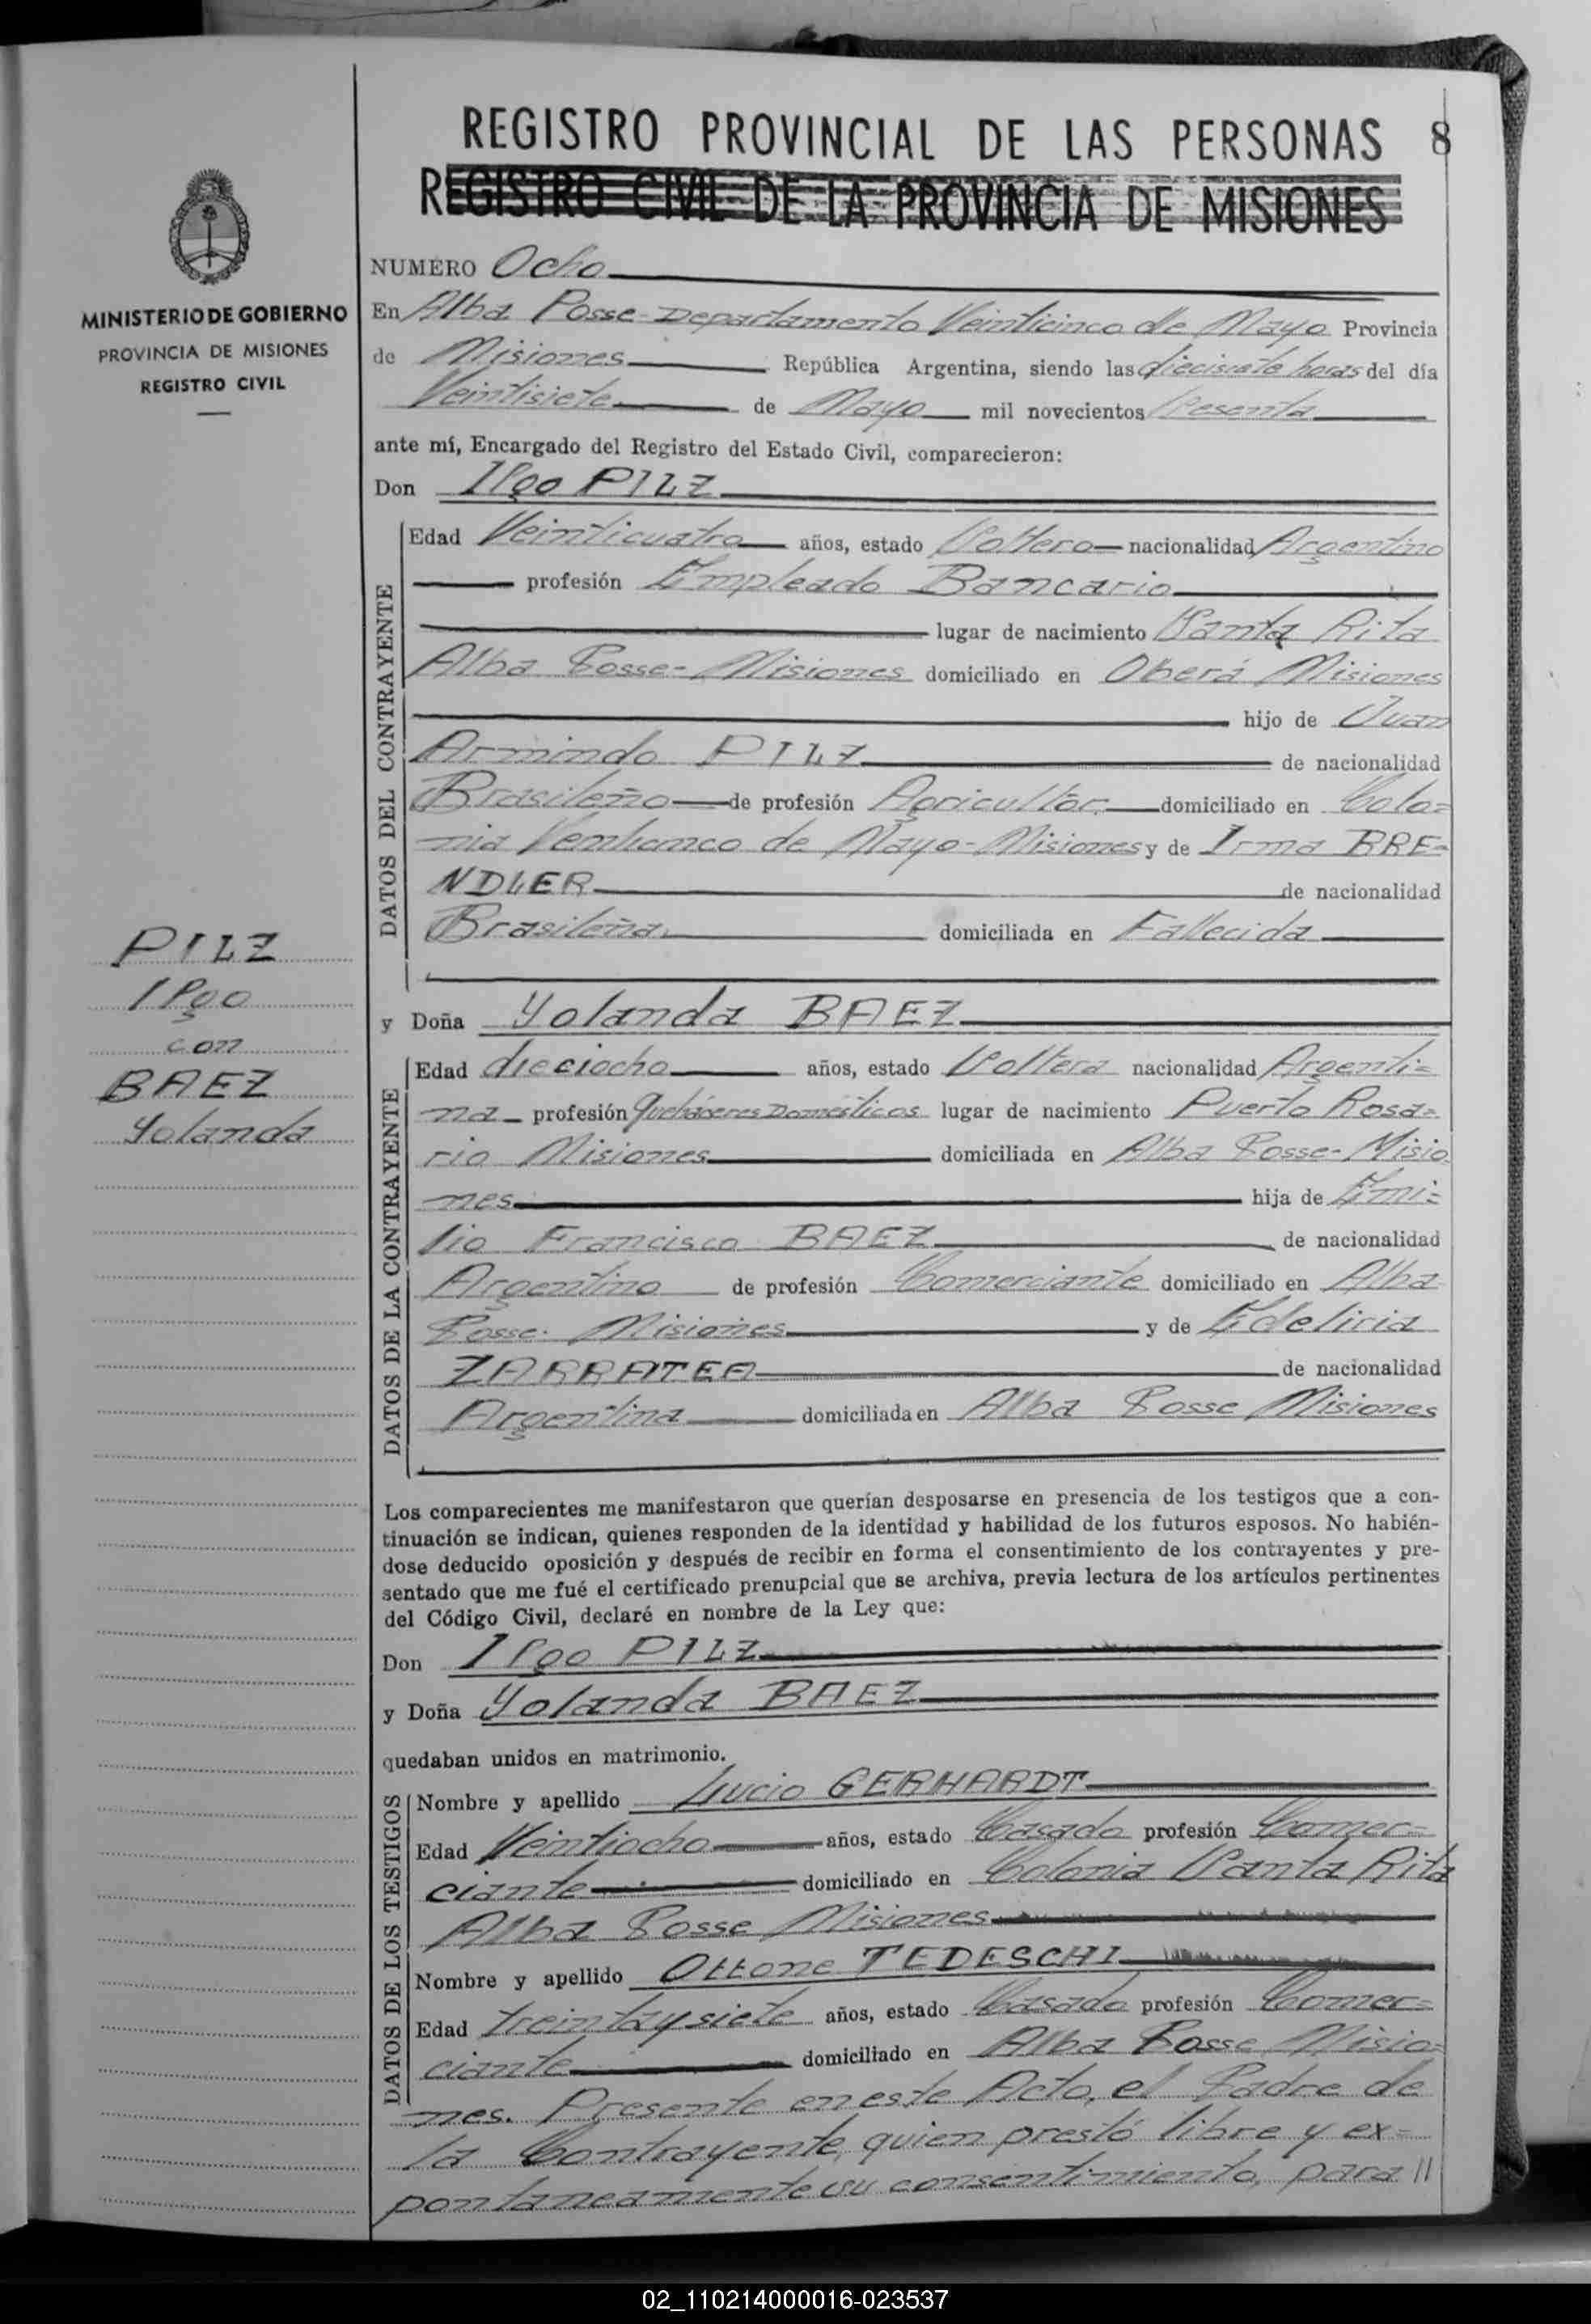 REGISTRO PROVINCIAL DE LAS PERSONAS 8
REGISTRO CIVIL DE LA PROVINCIA DE MISIONES
MINISTERIO DE GOBIERNO
PROVINCIA DE MISIONES
REGISTRO CIVIL
NUMERO Ocho
En Alba Posse-Departamento Veinticinco de Mayo Provincia
de Misiones República Argentina, siendo las diecisiete horas del día
Veintisiete de Mayo mil novecientos Sesenta
ante mí, Encargado del Registro del Estado Civil, comparecieron:
Don PILZ
DATOS DEL CONTRAYENTE
Edad Veinticuatro años, estado Soltero nacionalidad Argentino
profesión Empleado Bancario
lugar de nacimiento Santa Rita
Alba Posse-Misiones domiciliado en Oberá Misiones
hijo de Juan
Armindo PILZ de nacionalidad
Brasileño de profesión Agricultor domiciliado en Colo=
nia de Mayo-Misiones y de Irma BRE=
NDLER de nacionalidad
Brasileña domiciliada en Fallecida
PILZ
con
BAEZ
Yolanda
y Doña Yolanda BAEZ
DATOS DE LA CONTRAYENTE
Edad dieciocho años, estado Soltera nacionalidad Argenti=
na profesión Quehaceres Domésticos lugar de nacimiento Puerto Rosa=
rio Misiones domiciliada en Alba Posse-Misio
nes hija de Emi=
lio Francisco BAEZ de nacionalidad
Argentino de profesión Comerciante domiciliado en Alba
Posse. Misiones y de Edeliria
ZARRATEA de nacionalidad
Argentina domiciliada en Alba Posse Misiones
Los comparecientes me manifestaron que querían desposarse en presencia de los testigos que a con-
tinuación se indican, quienes responden de la identidad y habilidad de los futuros esposos. No habién-
dose deducido oposición y después de recibir en forma el consentimiento de los contrayentes y pre-
sentado que me fué el certificado prenupcial que se archiva, previa lectura de los artículos pertinentes
del Código Civil, declaré en nombre de la Ley que:
Don PILZ
y Doña Yolanda BAEZ
quedaban unidos en matrimonio.
DATOS DE LOS TESTIGOS
Nombre y apellido Lucio GERHARDT
Edad Veintiocho años, estado Casado profesión Comer=
ciante domiciliado en Colonia Santa Rita
Alba Posse Misiones
Nombre y apellido Ottone TEDESCHI
Edad treinta y siete años, estado Casado profesión Comer=
ciante domiciliado en Alba Posse Misio=
nes. Presente en este Acto, el Padre de
la Contrayente, quien prestó libre y ex=
pontaneamente su consentimiento, para //
02_110214000016-023537